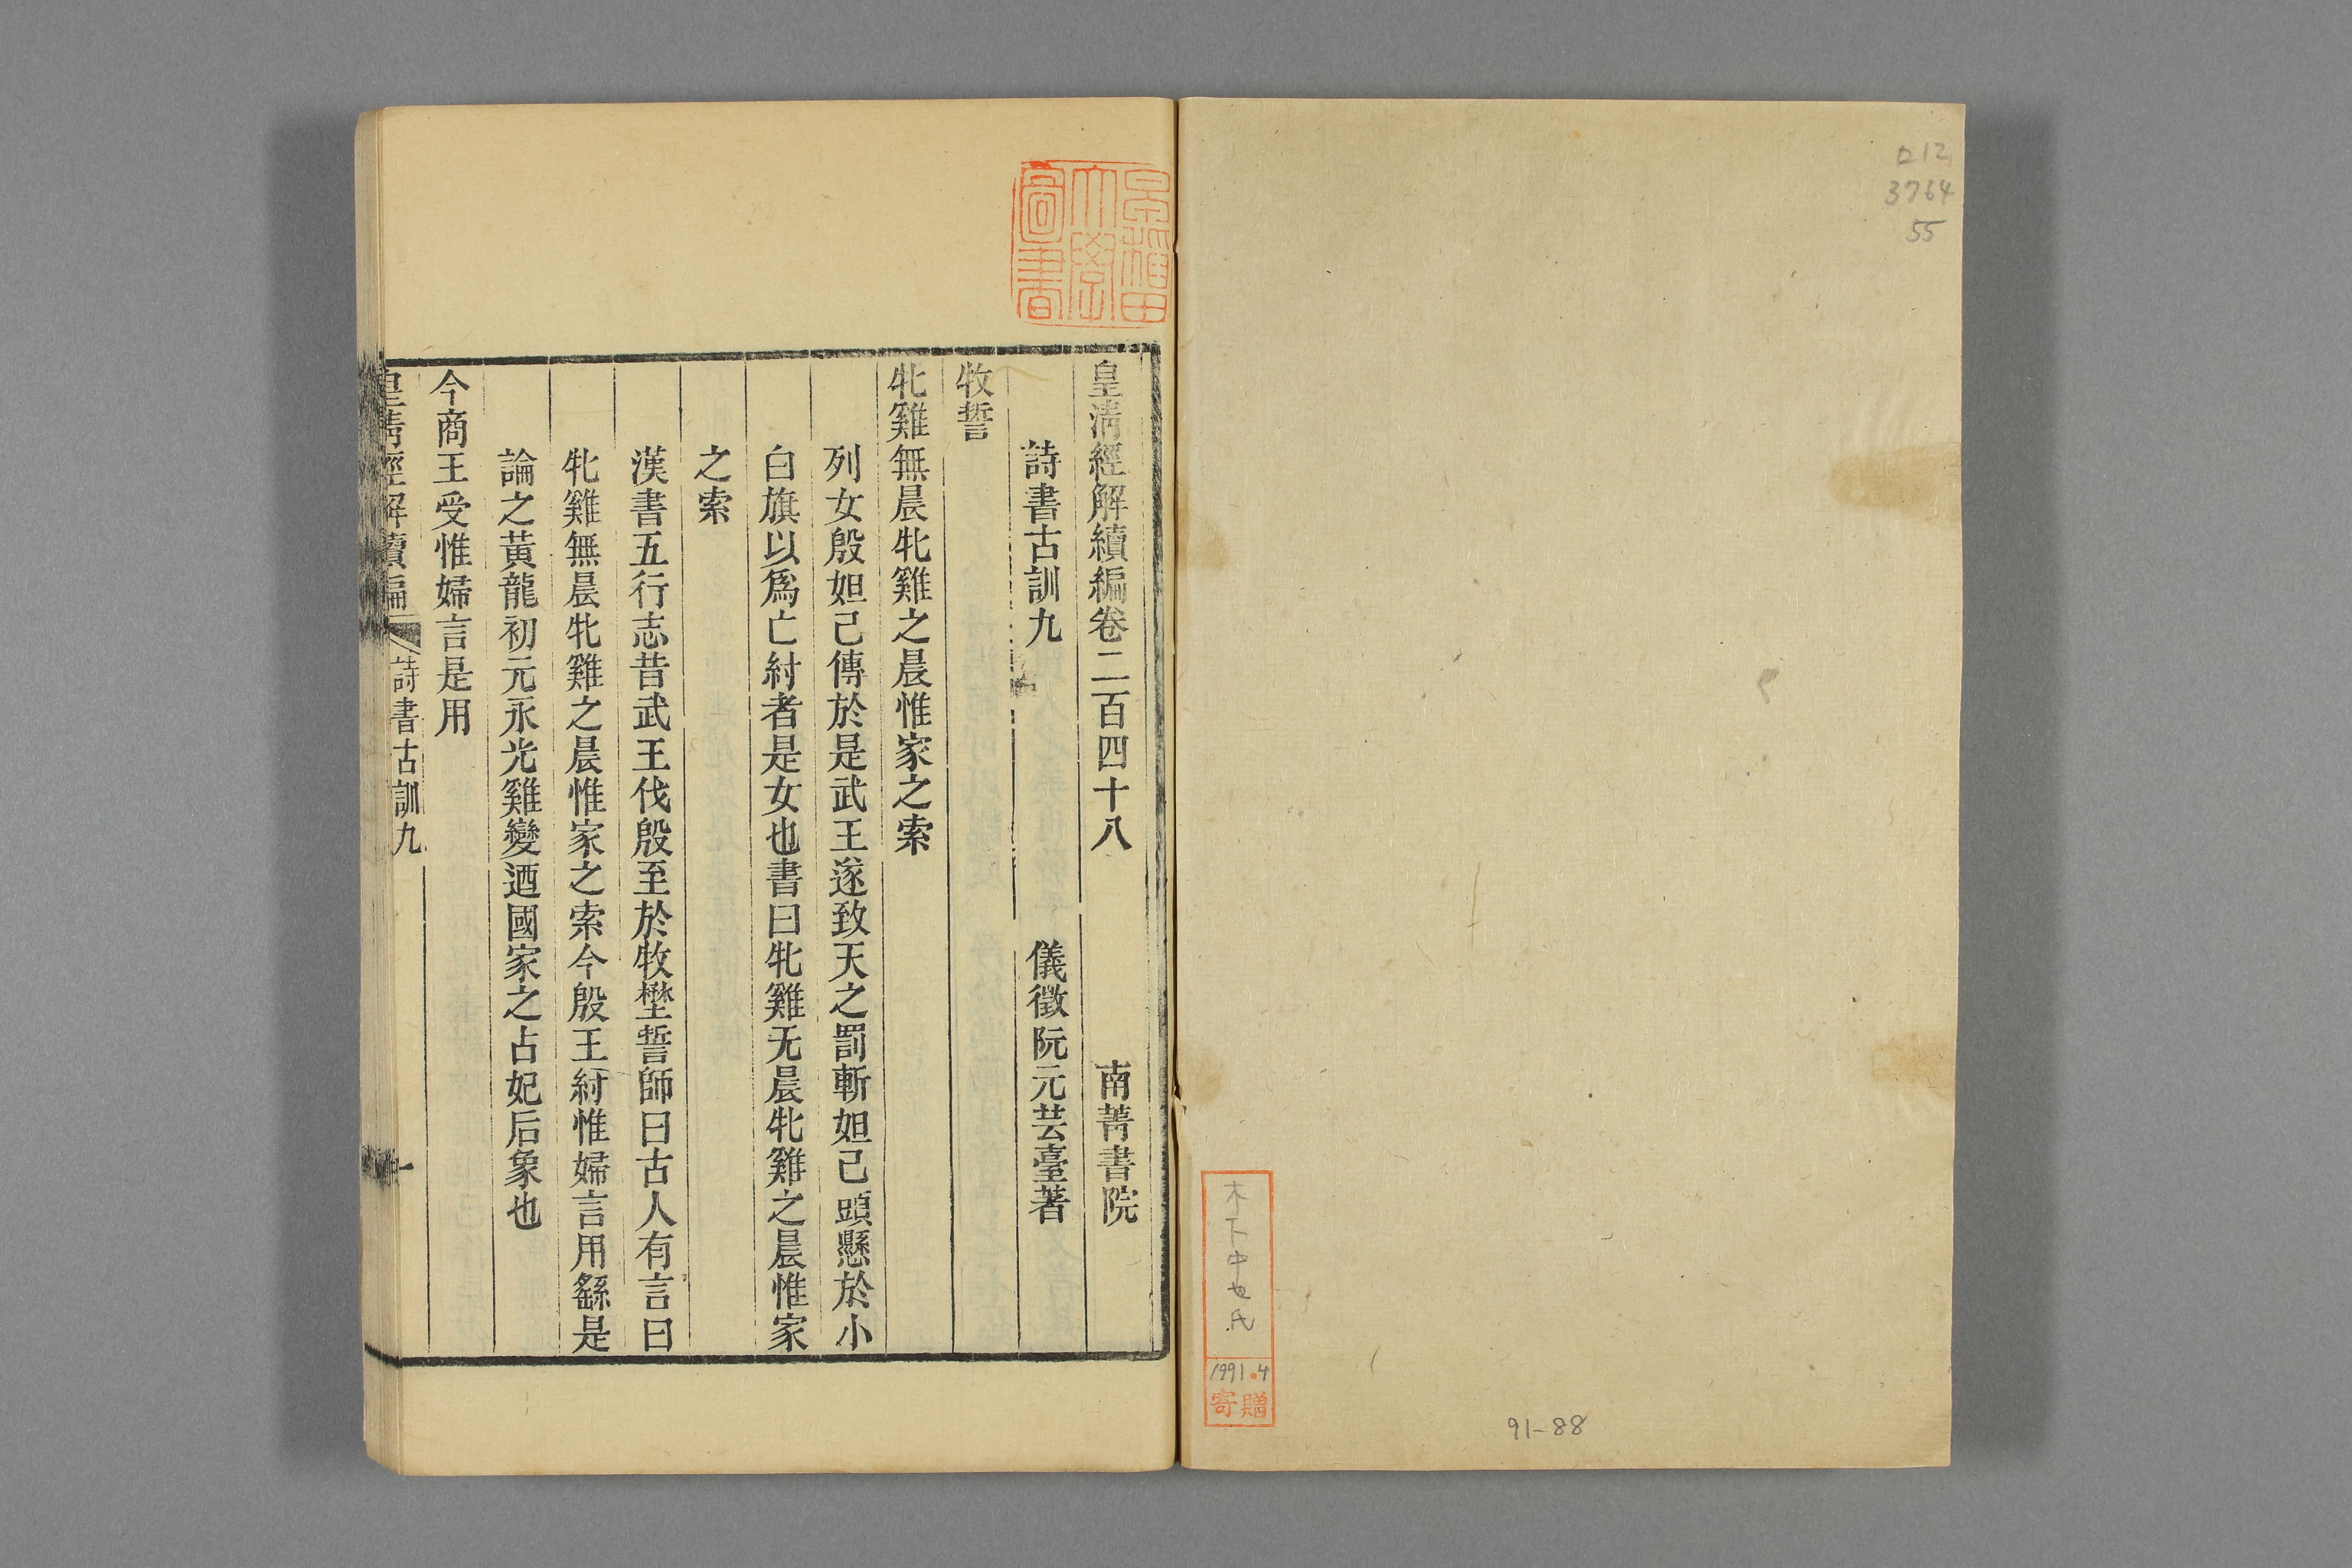 ロ12
3764
55
木下中也氏
1991.4
寄贈
91-88
早稲田
大學
圖書
皇清經解續編卷二百四十八 南菁書院
詩書古訓九 儀徵阮元芸臺著
牧誓
牝雞無晨牝雞之晨惟家之索
列女殷妲己傳於是武王遂致天之罰斬妲己頭懸於小
白旗以爲亡紂者是女也書曰牝雞无晨牝雞之晨惟家
之索
漢書五行志昔武王伐殷至於牧壄誓師曰古人有言曰
牝雞無晨牝雞之晨惟家之索今殷王紂惟婦言用繇是
論之黃龍初元永光雞變迺國家之占妃后象也
今商王受惟婦言是用
皇清經解續編 詩書古訓九 一